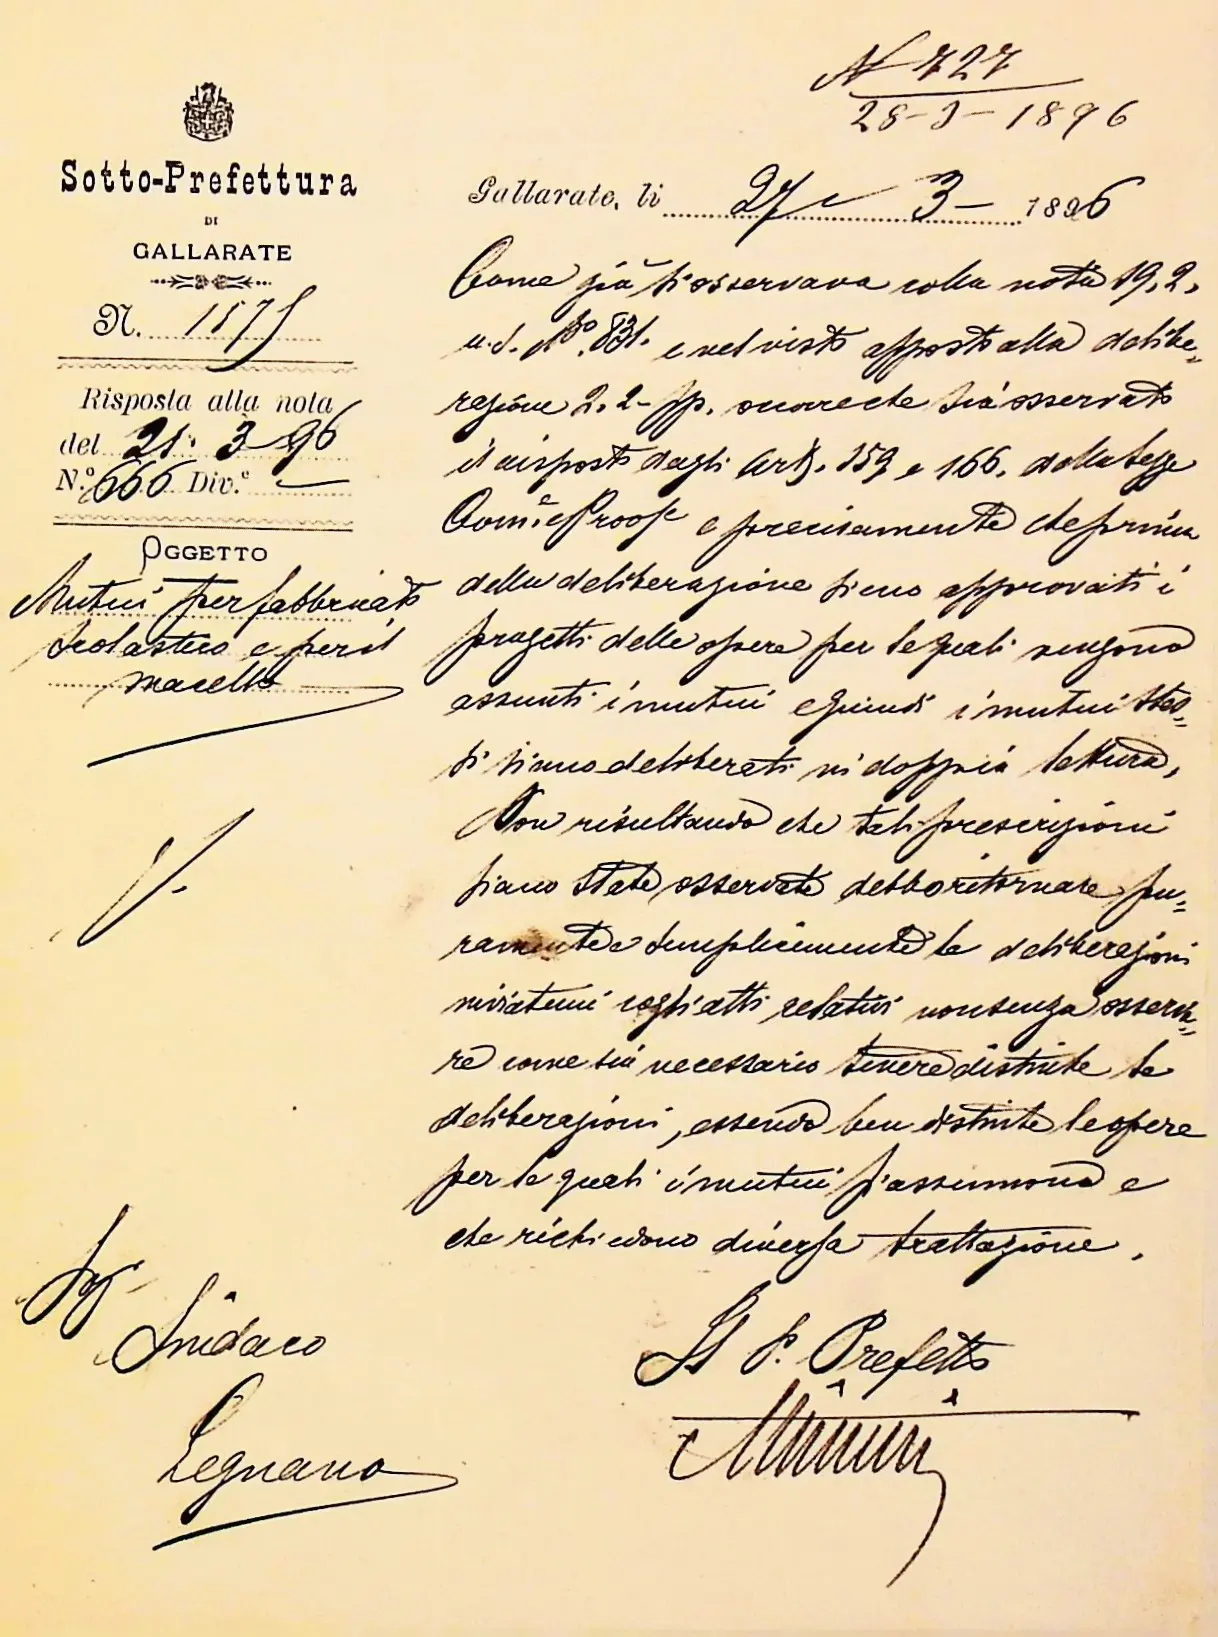 N 727
28-3-1896
Sotto-Prefettura
DI
GALLARATE
N. 1575
Risposta alla nota
del 21. 3 96
N.º 666 Div.e —
OGGETTO
Mutui per fabbricato
scolastico e per il
macello
Gallarate, li 27 - 3 - 1896
Come già si osservava colla nota 19. 2.
u.s. No. 831. e nel visto apposto alla delibe=
razione 2. 2 - pp. occorre che sia osservato
il disposto dagli Art. 159 e 166. della Legge
Com.e Prov.e e precisamente che prima
della deliberazione sieno approvati i
progetti delle opere per le quali vengono
assunti i mutui e quindi i mutui stes=
si siano deliberati in doppia lettura.
Non risultando che tali prescrizioni
siano state osservate debbo ritornare pu=
ramente e semplicemente le deliberazioni
inviatemi cogli atti relativi non senza osserva=
re come sia necessario tenere distinte le
deliberazioni, essendo ben distinte le opere
per le quali i mutui s'assumono e
che richiedono diversa trattazione.
Sig.
Sindaco
Legnano
Il S. Prefetto